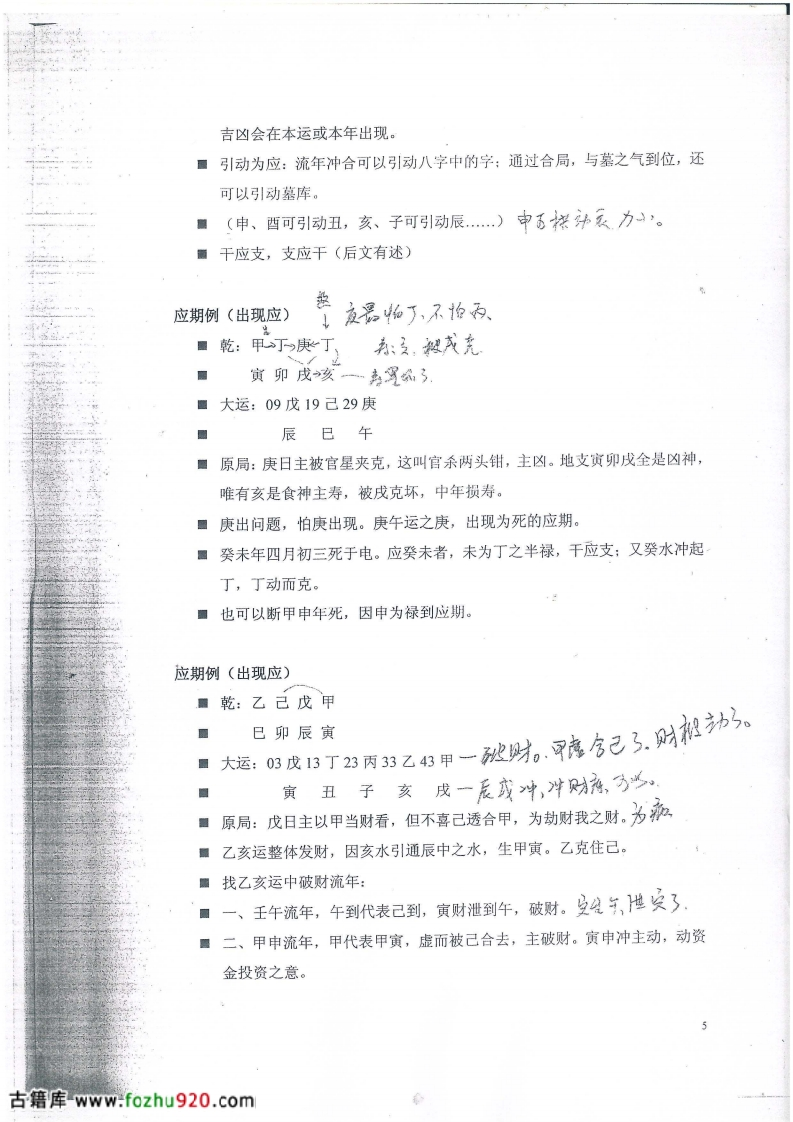 吉凶会在本运或本年出现。
■ 引动为应：流年冲合可以引动八字中的字；通过合局，与墓之气到位，还
可以引动墓库。
■ （申、酉可引动丑，亥、子可引动辰……）
■ 干应支，支应干（后文有述）
应期例（出现应） 庚最怕丁、不怕丙、
■ 乾：甲→丁→庚←丁 被戌克
■ 寅 卯 戌→亥
■ 大运：09 戊 19 己 29 庚
■ 辰 巳 午
■ 原局：庚日主被官星夹克，这叫官杀两头钳，主凶。地支寅卯戌全是凶神，
唯有亥是食神主寿，被戌克坏，中年损寿。
■ 庚出问题，怕庚出现。庚午运之庚，出现为死的应期。
■ 癸未年四月初三死于电。应癸未者，未为丁之半禄，干应支；又癸水冲起
丁，丁动而克。
■ 也可以断甲申年死，因申为禄到应期。
应期例（出现应）
■ 乾：乙 己 戊 甲
■ 巳 卯 辰 寅
■ 大运：03 戊 13 丁 23 丙 33 乙 43 甲 一破财。甲 合己了。财被动了。
■ 寅 丑 子 亥 戌 一辰戌冲、冲财库、
■ 原局：戊日主以甲当财看，但不喜己透合甲，为劫财我之财。为病
■ 乙亥运整体发财，因亥水引通辰中之水，生甲寅。乙克住己。
■ 找乙亥运中破财流年：
■ 一、壬午流年，午到代表己到，寅财泄到午，破财。
■ 二、甲申流年，甲代表甲寅，虚而被己合去，主破财。寅申冲主动，动资
金投资之意。
5
古籍库 www.fozhu920.com